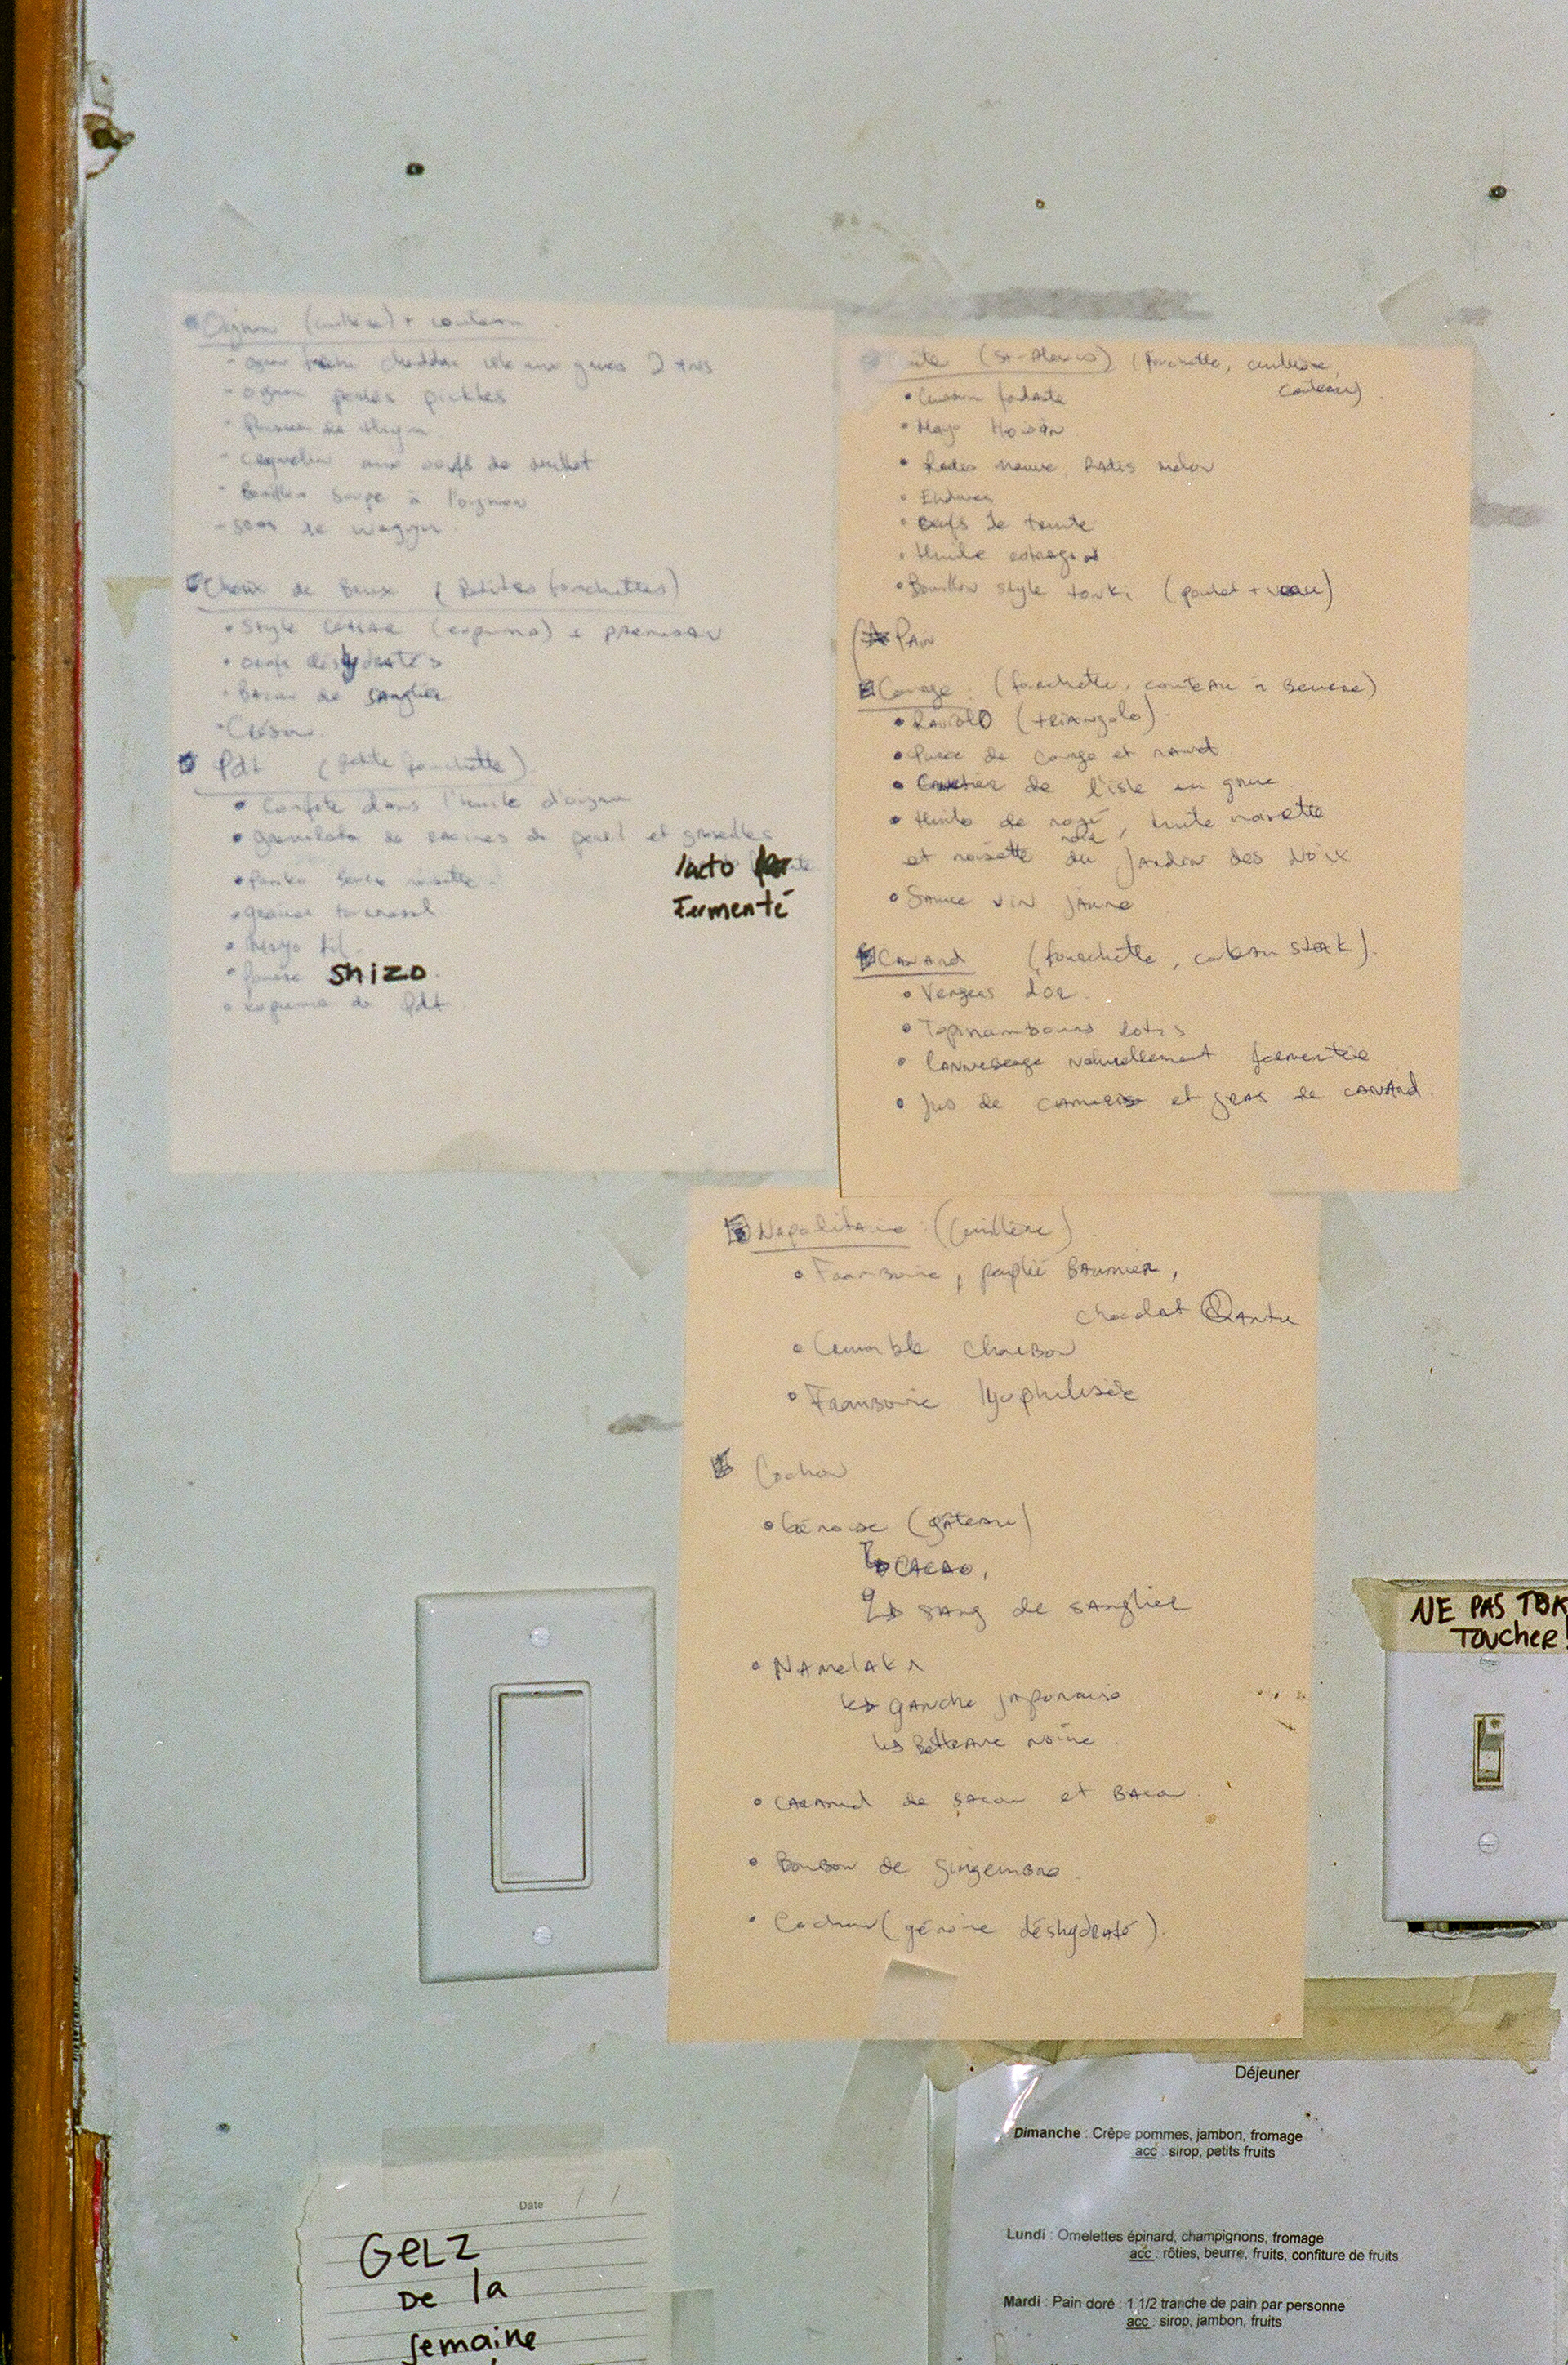 Oignon (cuillère) + couteau
- oignon cheddar 2 ans
- oignon perlés pickles
- de thym
- aux oeufs de mulet
- Bouillon soupe à l'oignon
- de wagyu
Choux de Brux (petites fourchettes)
• Style CESAR (espuma) + PARMESAN
• oeufs déshydratés
• Bacon de SANglier
• Cresson
Pdt (petite fourchette)
• Confite dans l'huile d'oignon
• gremolata de racines de persil et groseilles
lacto
Fermenté
• Panko beurre noisette
• graines tournesol
• Mayo
• pousse shizo
• espuma de Pdt
(St-Alexis) (fourchette, cuillère,
couteau)
• Cuisson fondante
• Mayo Hoisin
• Radis mauve, RADis melon
• Endives
• Oeufs de truite
• Huile estragon
• Bouillon style tonki (poulet + veau)
PAIN
Courge : (fourchette, couteau à Beurre)
• RAviolo (tRiANgolo)
• Purée de courge et
• de l'isle en
• Huile de , huile noisette
noix
et noisette du JARDin des NOix
• SAuce viN jAune
CANARd (fourchette, couteau SteAk)
• Vergers d'or
• TopinAmbours Rotis
• CANNeberge naturellement fermentée
• Jus de cAmeRise et gRAS de cANARd
NapolitAine : (cuillère)
• FramBoise, peuplié BAumier,
chocolat QAntu
• Crumble chARBon
• FramBoise lyophilisée
Cochon
• Génoise (gâteau)
↳ CACAO,
↳ SANg de SANglier
• NAmelAkA
↳ gANche jAponaise
↳ BetteRAve noire
• CARAmel de BAcon et BAcon
• BonBon de gingemBre
• Cochon (génoise déshydRAté).
NE PAS
TOUCHER!
Déjeuner
Dimanche : Crêpe pommes, jambon, fromage
acc : sirop, petits fruits
Lundi : Omelettes épinard, champignons, fromage
acc : rôties, beurre, fruits, confiture de fruits
Mardi : Pain doré : 1 1/2 tranche de pain par personne
acc : sirop, jambon, fruits
Date / /
GELZ
De la
semaine